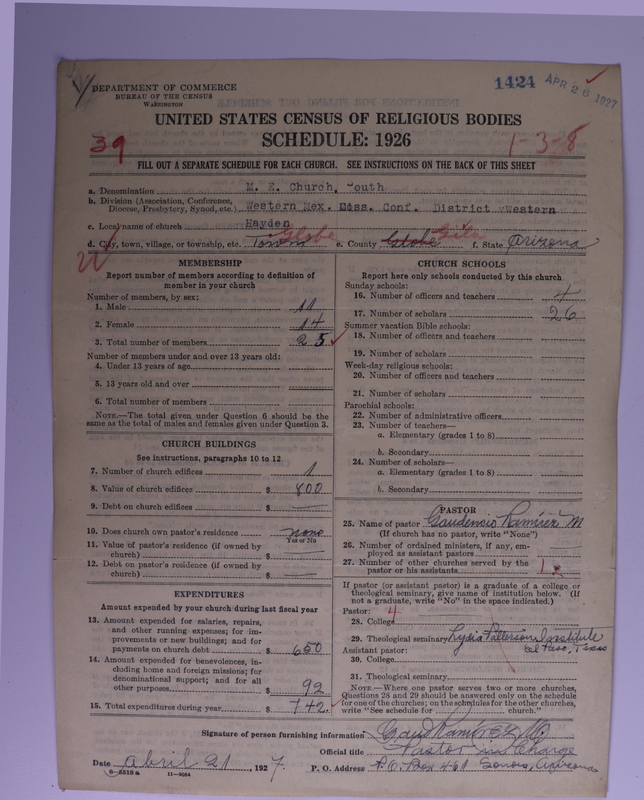 DEPARTMENT OF COMMERCE
BUREAU OF THE CENSUS
WASHINGTON
1424 APR 26 1927
UNITED STATES CENSUS OF RELIGIOUS BODIES
SCHEDULE: 1926
39
1-3-8
FILL OUT A SEPARATE SCHEDULE FOR EACH CHURCH. SEE INSTRUCTIONS ON THE BACK OF THIS SHEET
a. Denomination M. E. Church, South
b. Division (Association, Conference, Diocese, Presbytery, Synod, etc.) Western Mex. Miss. Conf. District Western
c. Local name of church Hayden
d. City, town, village, or township, etc. Town Globe e. County Globe Gila f. State Arizona
MEMBERSHIP
Report number of members according to definition of
member in your church
Number of members, by sex:
1. Male 11
2. Female 14
3. Total number of members 25
Number of members under and over 13 years old:
4. Under 13 years of age
5. 13 years old and over
6. Total number of members
NOTE.—The total given under Question 6 should be the
same as the total of males and females given under Question 3.
CHURCH BUILDINGS
See instructions, paragraphs 10 to 12
7. Number of church edifices 1
8. Value of church edifices $ 800
9. Debt on church edifices $ —
10. Does church own pastor's residence none
Yes or No
11. Value of pastor's residence (if owned by
church) $ —
12. Debt on pastor's residence (if owned by
church) $ —
EXPENDITURES
Amount expended by your church during last fiscal year
13. Amount expended for salaries, repairs,
and other running expenses; for im-
provements or new buildings; and for
payments on church debt $ 650
14. Amount expended for benevolences, in-
cluding home and foreign missions; for
denominational support; and for all
other purposes $ 92
15. Total expenditures during year $ 742
CHURCH SCHOOLS
Report here only schools conducted by this church
Sunday schools:
16. Number of officers and teachers 4
17. Number of scholars 26
Summer vacation Bible schools:
18. Number of officers and teachers
19. Number of scholars
Week-day religious schools:
20. Number of officers and teachers
21. Number of scholars
Parochial schools:
22. Number of administrative officers
23. Number of teachers—
a. Elementary (grades 1 to 8)
b. Secondary
24. Number of scholars—
a. Elementary (grades 1 to 8)
b. Secondary
PASTOR
25. Name of pastor Gaudencio Ramirez M
(If church has no pastor, write "None")
26. Number of ordained ministers, if any, em-
ployed as assistant pastors
27. Number of other churches served by the
pastor or his assistants 1
If pastor (or assistant pastor) is a graduate of a college or
theological seminary, give name of institution below. (If
not a graduate, write "No" in the space indicated.)
Pastor: 4
28. College
29. Theological seminary Lydia Patterson Institute
El Paso, Texas
Assistant pastor:
30. College
31. Theological seminary
NOTE.—Where one pastor serves two or more churches,
Questions 28 and 29 should be answered only on the schedule
for one of the churches; on the schedules for the other churches,
write "See schedule for church."
Signature of person furnishing information Gaud Ramirez M.
Official title Pastor in Charge
Date Abril 21, 1927 P. O. Address P.O. Box 461 Sonora, Arizona
6—5518a 11—9084